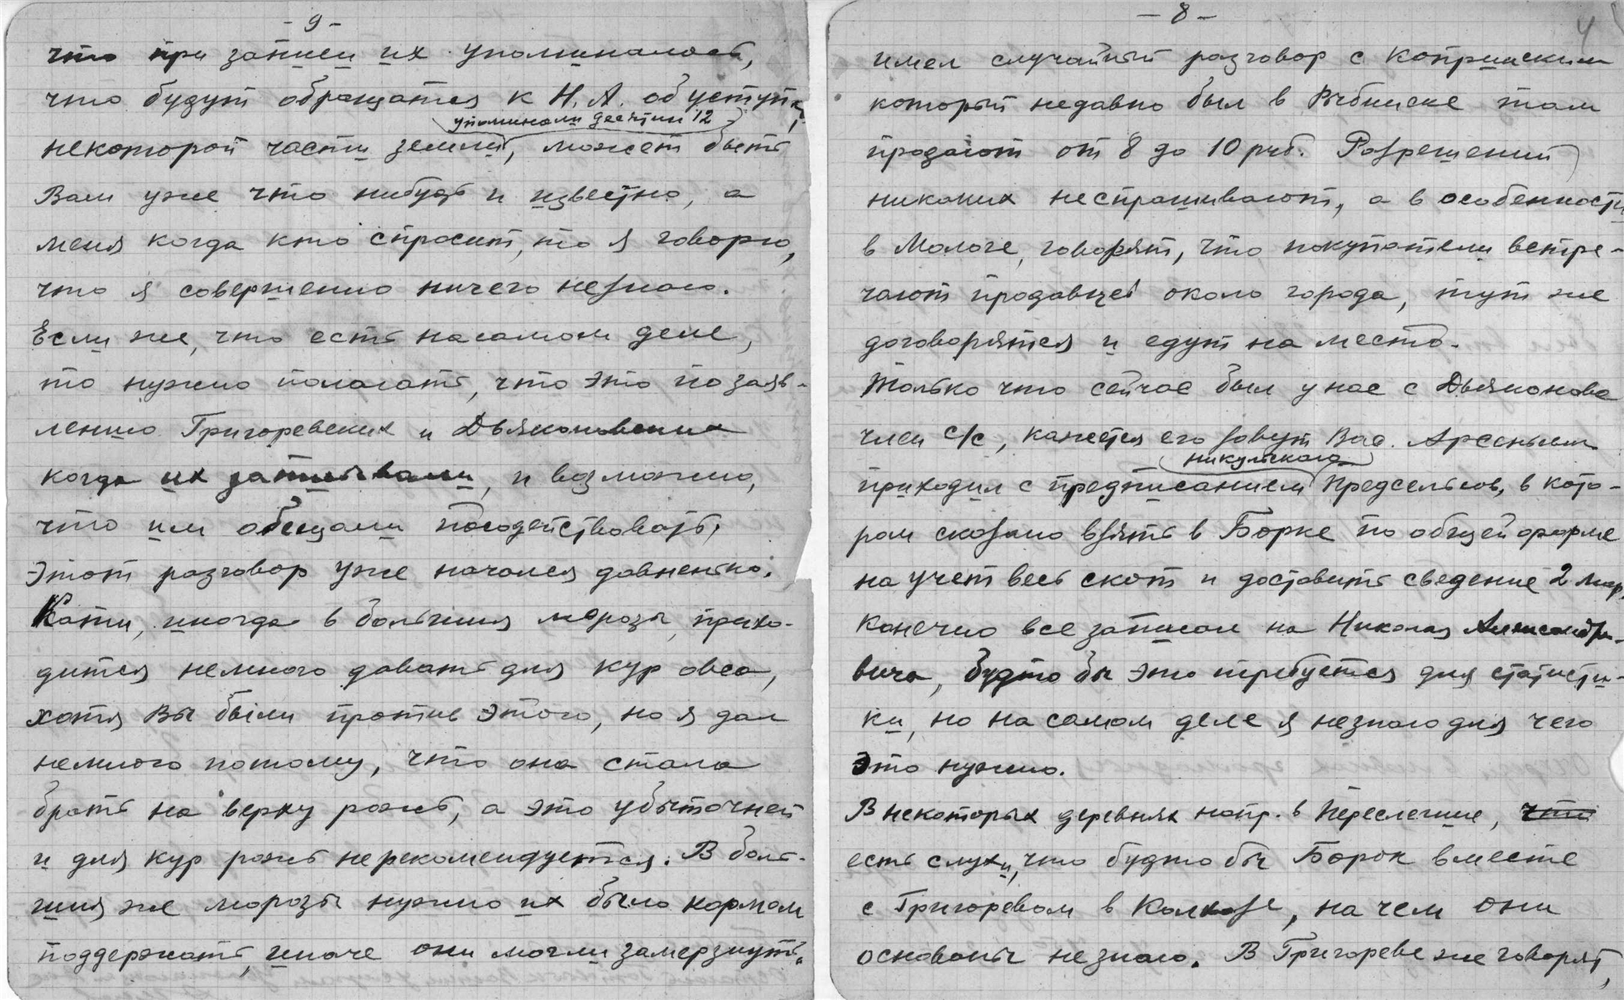 - 9 -
что при записи их упоминалось,
что будут обращатся к Н. А. об уступке
упоминали десятин 12
некоторой части земли, может быть
Вам уже что нибудь и известно, а
меня когда кто спросит, то я говорю,
что я совершенно ничего незнаю.
Если же, что есть насамом деле,
то нужно полагать, что это по заяв-
лению Григоревских и Дьяконовских
когда их записывали, и возможно,
что им обещали посодействовать,
Этот разговор уже начался давненько.
Кати, иногда в большия морозы, прихо-
дится немного давать для кур овса,
хотя Вы были против этого, но я дал
немного потому, что она стала
брать на верху рожь, а это убыточней
и для кур рожь нерекомендуется. В боль-
шия же морозы нужно их было кормом
поддержать, иначе они могли замерзнуть.
- 8 -
4
имел случайный разговор с Коприским
который недавно был в Рыбинске там
продают от 8 до 10 руб. Разрешений
никаких неспрашивают, а в особенности
в Мологе, говорят, что покупатели встре-
чают продавцев около города, тут же
договорятся и едут на место.
Только что сейчас был у нас с Дьяконова
член с/с, кажется его зовут Вас. Арсеньем
никульского
приходил с предписанием Предсельсов, в кото-
ром сказано взять в Борке по общей форме
на учет весь скот и доставить сведение 2 мар.
Конечно все записал на Николая Александро-
вича, будто бы это требуется для статисти-
ки, но на самом деле я незнаю для чего
это нужно.
В некоторых деревнях напр. в Переслегине, что
есть слухи, что будто бы Борок вместе
с Григоревом в Колхозе, на чем они
основаны незнаю. В Григореве же говорят,